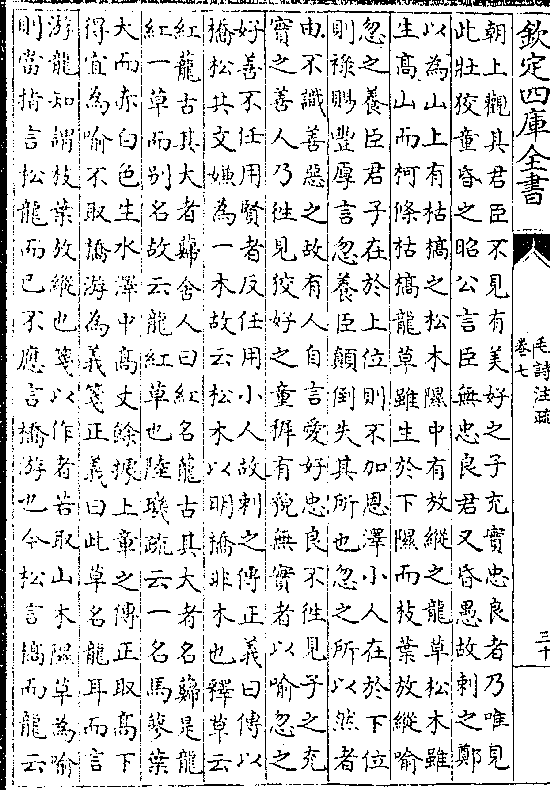 欽定四庫全書
毛詩注疏
卷七
三十
朝上觀其君臣不見有美好之子充實忠良者乃唯見
此壯狡童昏之昭公言臣無忠良君又昏愚故刺之鄭
以為山上有枯槁之松木隰中有放縱之龍草松木雖
生高山而柯條枯槁龍草雖生於下隰而枝葉放縱喻
忽之養臣君子在於上位則不加恩澤小人在於下位
則祿賜豐厚言忽養臣顛倒失其所也忽之所以然者
由不識善惡之故有人自言愛好忠良不徃見子之充
實之善人乃徃見狡好之童穉有貌無實者以喻忽之
好善不任用賢者反任用小人故刺之傳正義曰傳以
橋松共文嫌為一木故云松木以明橋非木也釋草云
紅龍古其大者蘬舍人曰紅名龍古其大者名蘬是龍
紅一草而別名故云龍紅草也陸璣疏云一名馬蓼葉
大而赤白色生水澤中高丈餘據上章之傳正取高下
得宜為喻不取橋游為義箋正義曰此草名龍耳而言
游龍知謂枝葉放縱也箋以作者若取山木隰草為喻
則當指言松龍而已不應言橋游也今松言槁而龍云